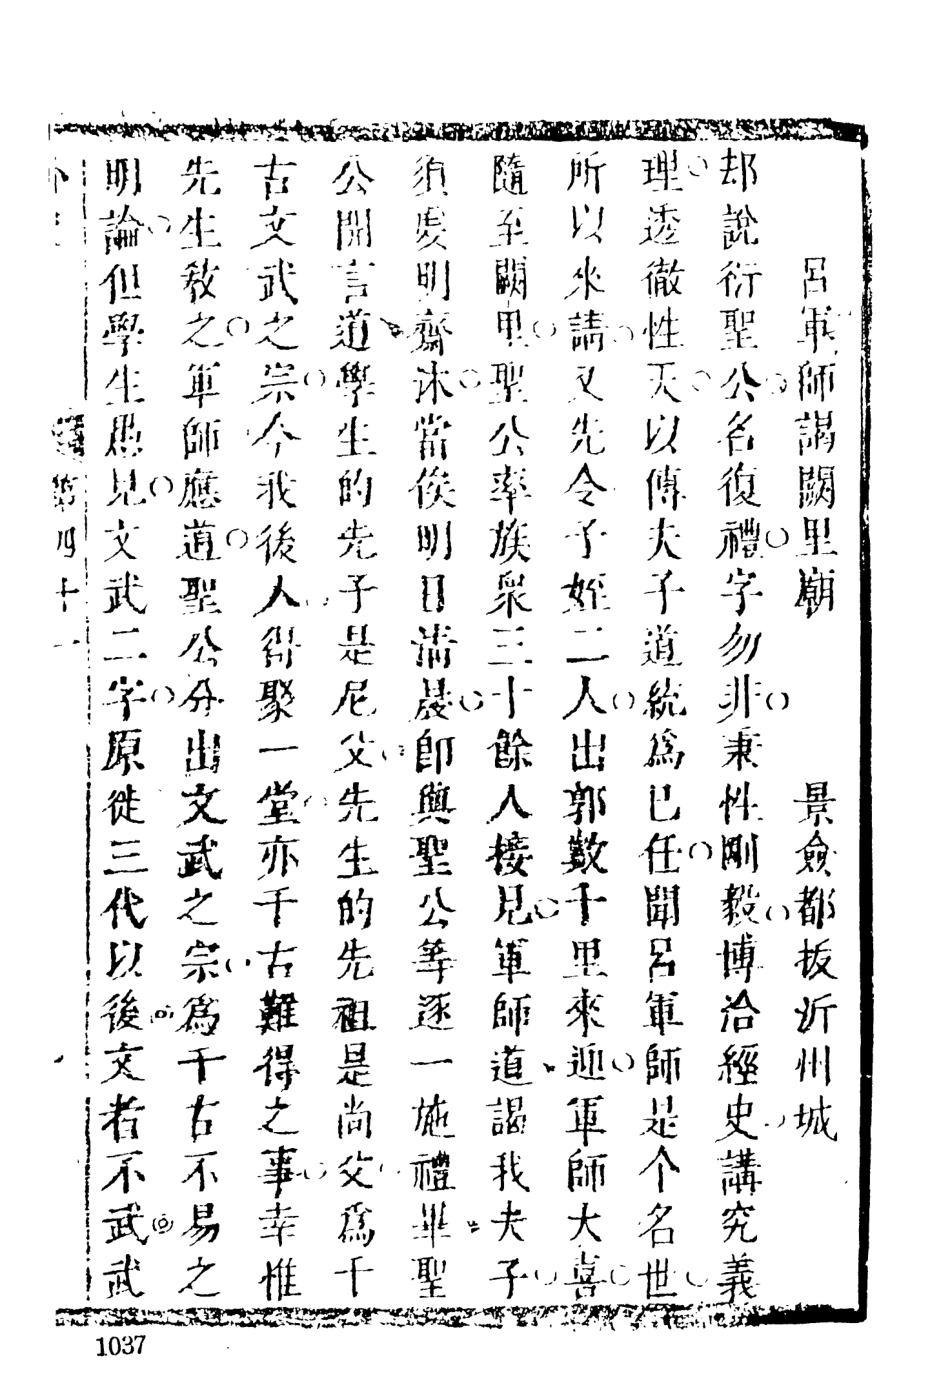 呂軍師謁闕里廟　景僉都扳沂州城
却說衍聖公名復禮字勿非秉性剛毅博洽經史講究義
理透徹性天以傳夫子道統爲已任聞呂軍師是个名世
所以來請又先令子姪二人出郭數十里來迎軍師大喜
隨至闕里聖公率族衆三十餘人接見軍師道謁我夫子
須要明齋沐當俟明日淸晨卽與聖公等逐一施禮畢聖
公開言道學生的先子是尼父先生的先祖是尚父爲千
古文武之宗今我後人得聚一堂亦千古難得之事幸惟
先生敎之軍師應道聖公分出文武之宗爲千古不易之
明論但學生愚見文武二字原從三代以後文者不武武
第四十一
1037